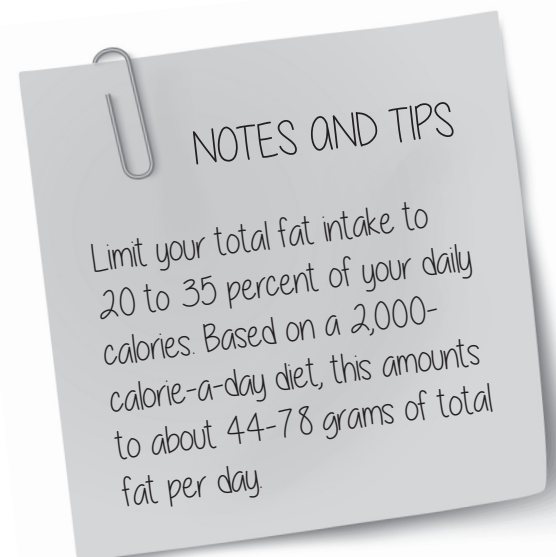 NOTES AND TIPS
Limit your total fat intake to
20 to 35 percent of your daily
calories. Based on a 2,000-
calorie-a-day diet, this amounts
to about 44-78 grams of total
fat per day.